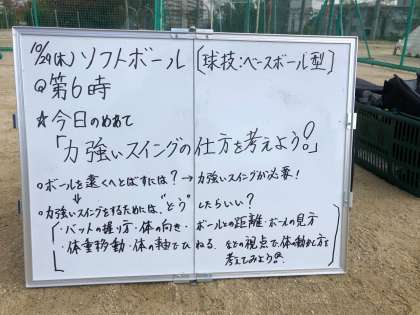 10/29(木) ソフトボール [球技:ベースボール型]
@第6時
☆今日のめあて
「力強いスイングの仕方を考えよう!」
○ボールを遠くへとばすには?→力強いスイングが必要!
↓
○力強いスイングをするためには、"どう"したらいい?
・バットの握り方・体の向き・ボールとの距離・ボールの見方
・体重移動・体の軸でひねる などの視点で、体の動かし方を
考えてみよう!